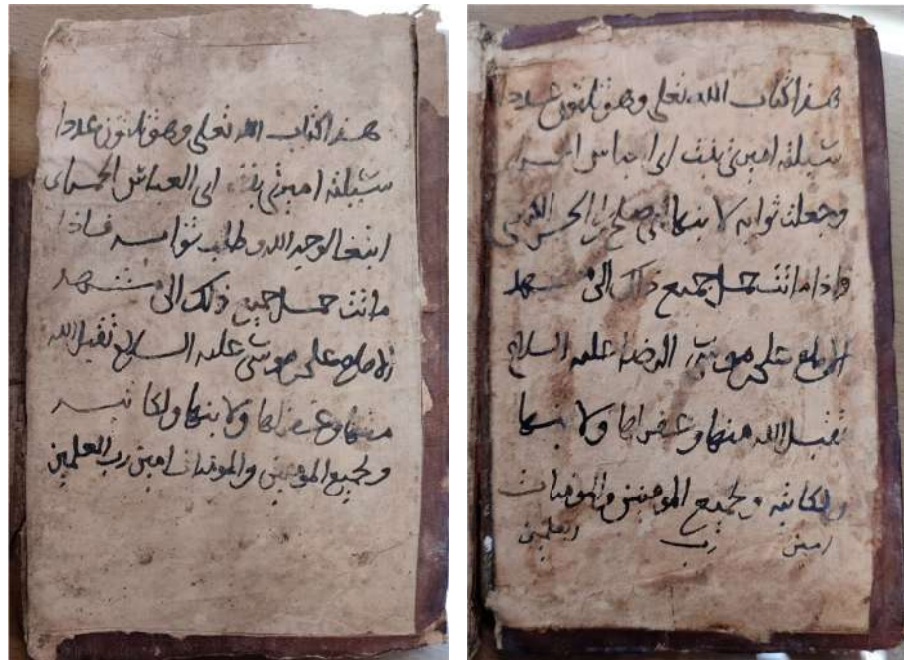 هذا كتاب الله تعلى وهو ثلثون عددا
سبلته اميرتي بنت ابي العباس
ابتغا لوجه الله وطلب ثوابه فاذا
ماتت حمل جميع ذلك الى مشهد
الامام على موسى عليه السلام تقبل الله
منها وغفر لها ولابنها ولكاتبه
ولجميع المومنين والمومنات امين رب العلمين
هذا كتاب الله تعلى وهو ثلثون عددا
سبلته اميرتي بنت ابي
وجعلت ثوابه لابنها ابي
فاذا ماتت حمل جميع ذلك الى مشهد
الامام على موسى الرضا عليه السلام
تقبل الله منها وغفر لها ولابنها
ولكاتبه ولجميع المومنين والمومنات
امين رب العلمين